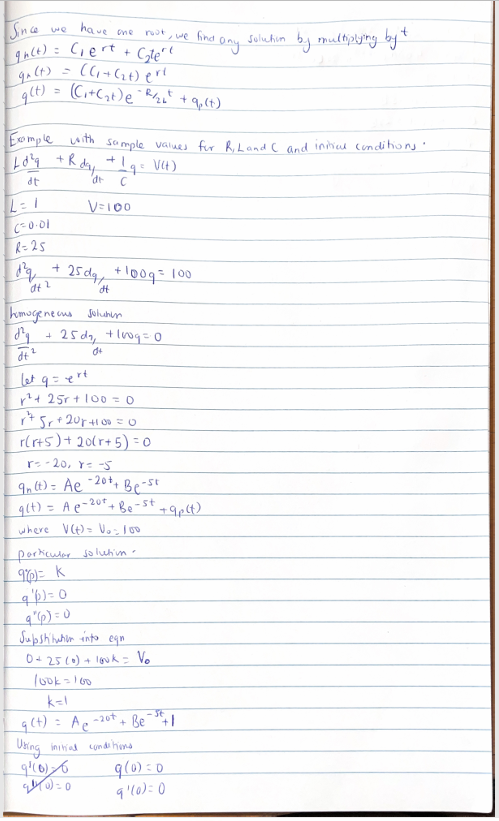 Since we have one root, we find any solution by multiplying by t
qh(t) = C₁e^rt + C₂te^rt
qh(t) = (C₁+C₂t) e^rt
q(t) = (C₁+C₂t)e^-R/2L t + qp(t)
Example with sample values for R, L and C and initial conditions.
L d²q/dt + R dq/dt + 1/C q = V(t)
L = 1 V=100
C=0.01
R=25
d²q/dt² + 25dq/dt + 100q = 100
homogeneous solution
d²q/dt² + 25dq/dt + 100q = 0
let q = e^rt
r² + 25r + 100 = 0
r²+ 5r + 20r +100 = 0
r(r+5) + 20(r+5) = 0
r = -20, r = -5
qh(t) = Ae^-20t + Be^-5t
q(t) = Ae^-20t + Be^-5t + qp(t)
where V(t) = V₀ = 100
particular solution.
q(p) = k
q'(p) = 0
q''(p) = 0
Substitution into eqn
0 + 25(0) + 100k = V₀
100k = 100
k=1
q(t) = Ae^-20t + Be^-5t + 1
Using initial conditions
q'(0) = 0 q(0) = 0
q''(0) = 0 q'(0) = 0